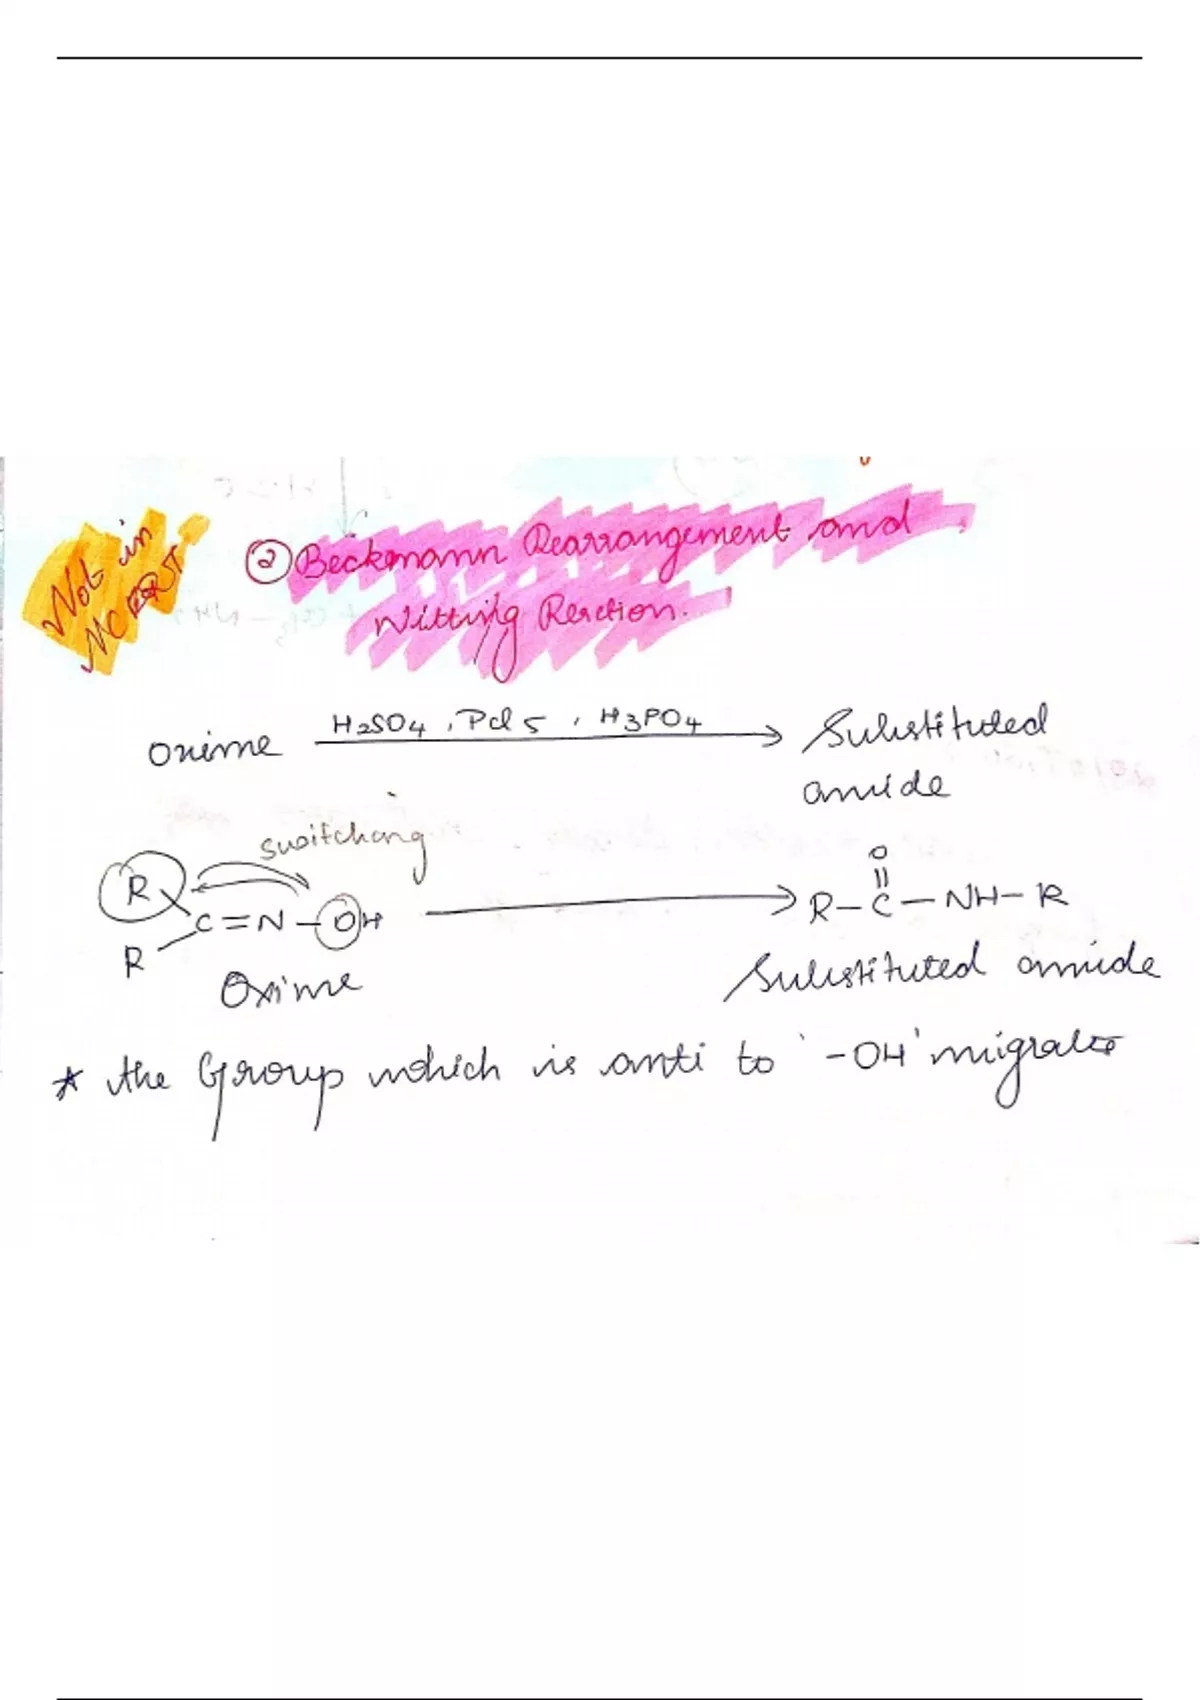 Not in
NCERT
② Beckmann Rearrangement and
Witting Reaction.
Oxime H2SO4, PCl5, H3PO4 → Substituted
amide
switching
R
C=N-OH
R
→
O
||
R-C-NH-R
Oxime
Substituted amide
* the Group which is anti to '-OH' migrates